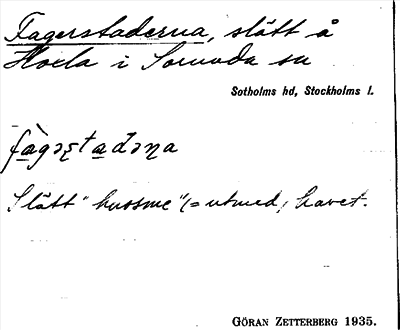 Fagerstaderna, slått å
Hoxla i Sorunda sn
Sotholms hd, Stockholms l.
fàgəʂtadəɳa
Slått "hussme" (= utmed) havet.
GÖRAN ZETTERBERG 1935.